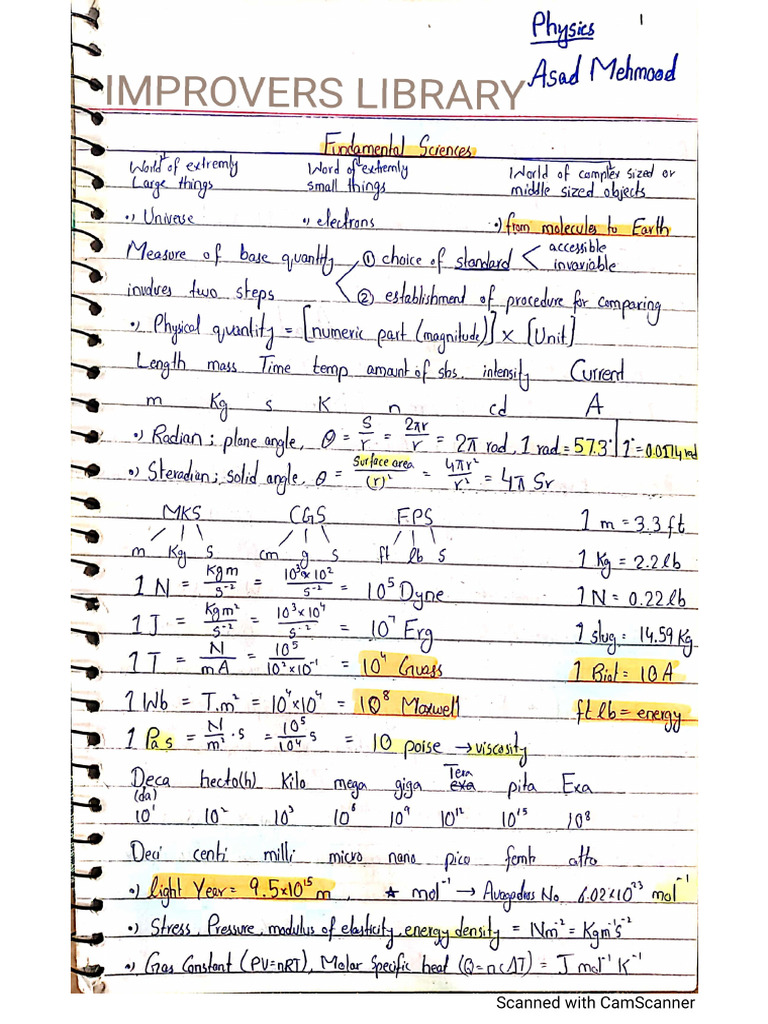 Physics 1
Asad Mehmood
IMPROVERS LIBRARY
Fundamental Sciences
World of extremly Large things
Word of extremly small things
World of complex sized or middle sized objects
•) Universe •) electrons •) from molecules to Earth
Measure of base quantity involves two steps
① choice of standard < accessible invariable
② establishment of procedure for comparing
•) Physical quantity = [numeric part (magnitude)] × [Unit]
Length mass Time temp amount of sbs. intensity Current
m Kg s K n cd A
•) Radian; plane angle, θ = S/r = 2πr/r = 2π rad, 1 rad = 57.3° | 1° = 0.0174 rad
•) Steradian; solid angle, θ = Surface area/(r)² = 4πr²/r² = 4π Sr
MKS CGS FPS 1 m = 3.3 ft
m Kg s cm g s ft lb s 1 Kg = 2.2lb
1 N = Kgm/s⁻² = 10³×10²/s⁻² = 10⁵ Dyne 1 N = 0.22 lb
1 J = Kgm²/s⁻² = 10³×10⁴/s⁻² = 10⁷ Erg 1 slug = 14.59 Kg
1 T = N/mA = 10⁵/10²×10⁻¹ = 10⁴ Guass 1 Biot = 10 A
1 Wb = T.m² = 10⁴×10⁴ = 10⁸ Maxwell ft lb = energy
1 Pa s = N/m² · s = 10⁵/10⁴ s = 10 poise → viscosity
Deca (da) hecto(h) Kilo mega giga Tera exa pita Exa
10¹ 10² 10³ 10⁶ 10⁹ 10¹² 10¹⁵ 10⁸
Deci centi milli micro nano pico femto atto
•) light Year = 9.5×10¹⁵ m , ★ mol⁻¹ → Avogadros No. 6.02×10²³ mol⁻¹
•) Stress, Pressure, modulus of elasticity, energy density = Nm⁻² = Kgm⁻¹s⁻²
•) Gas Constant (PV=nRT), Molar Specific heat (Q=ncΔT) = J mol⁻¹ K⁻¹
Scanned with CamScanner